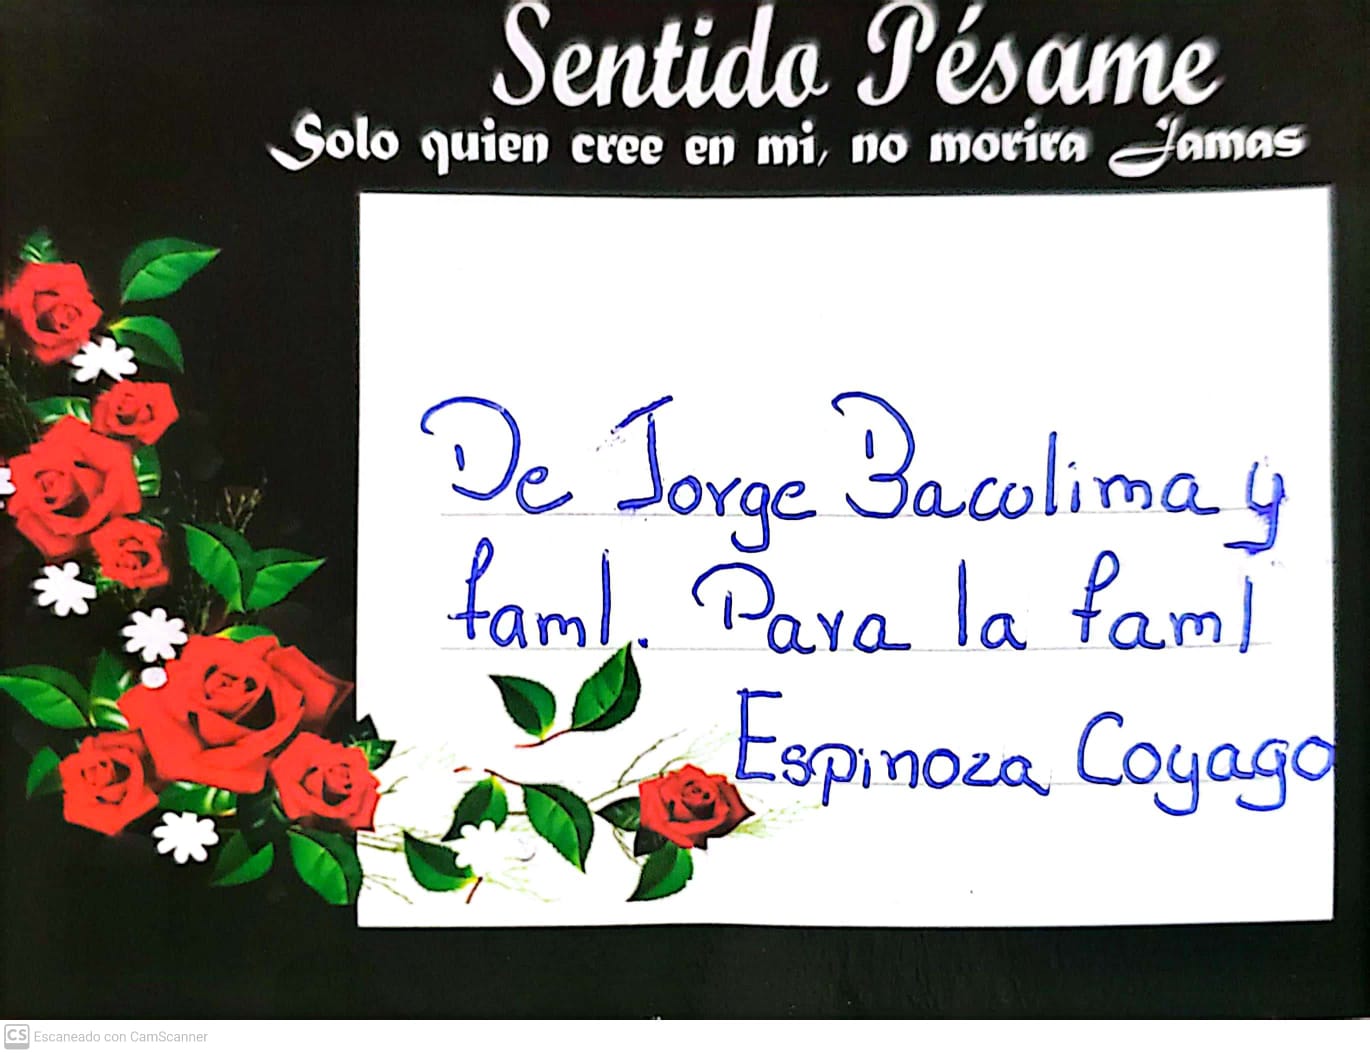 Sentido Pésame
Solo quien cree en mi, no morira Jamas
De Jorge Bacolima y
faml. Para la faml
Espinoza Coyago
CS Escaneado con CamScanner